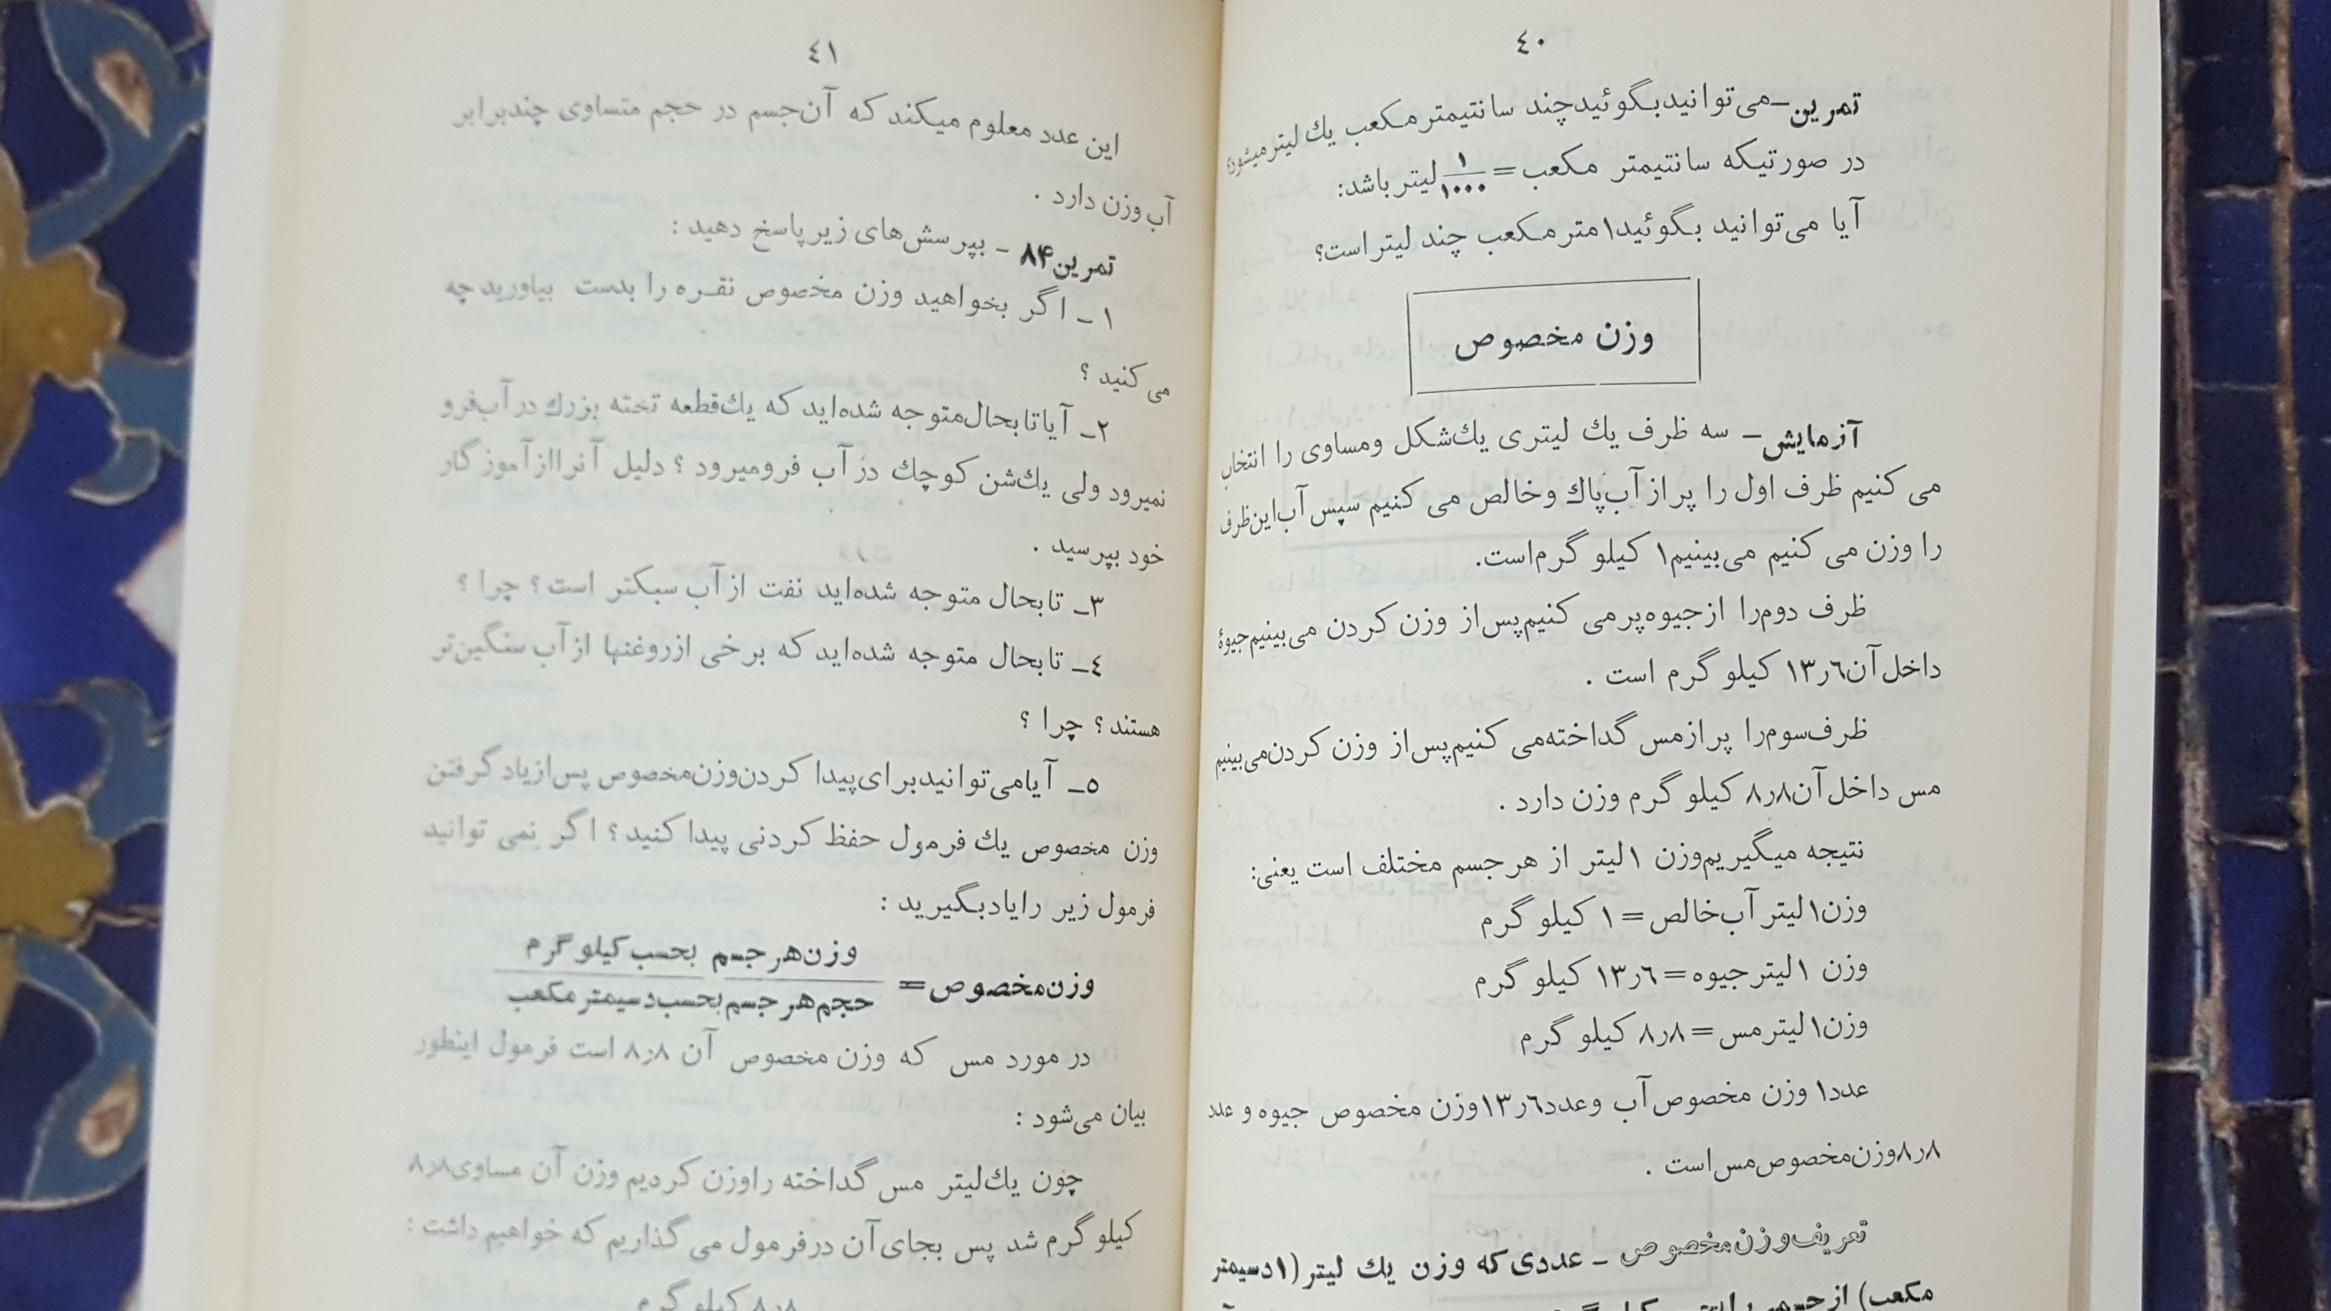 ٤٠
تمرین_می‌توانیدبگوئیدچند سانتیمترمکعب یك لیترمیشود؛
در صورتیکه سانتیمتر مکعب=۱/۱۰۰۰لیترباشد:
آیا می‌توانید بگوئید۱مترمکعب چند لیتراست؟
وزن مخصوص
آزمایش_ سه ظرف یك لیتری یك‌شکل ومساوی را انتخاب
می کنیم ظرف اول را پرازآب‌پاك وخالص می کنیم سپس آب‌این‌ظرف
را وزن می کنیم می‌بینیم۱ کیلو گرم‌است.
ظرف دوم‌را ازجیوه‌پرمی کنیم‌پس‌از وزن کردن می‌بینیم‌جیوهٔ
داخل‌آن۱۳٫٦ کیلو گرم است .
ظرف‌سوم‌را پرازمس گداخته‌می کنیم‌پس‌از وزن کردن‌می‌بینیم
مس داخل‌آن۸٫۸ کیلو گرم وزن دارد .
نتیجه میگیریم‌وزن ۱لیتر از هرجسم مختلف است یعنی:
وزن۱لیترآب‌خالص=۱ کیلو گرم
وزن ۱لیترجیوه=۱۳٫٦ کیلو گرم
وزن۱لیترمس=۸٫۸ کیلو گرم
عدد۱ وزن مخصوص‌آب وعدد۱۳٫٦وزن مخصوص جیوه و عدد
۸٫۸وزن‌مخصوص‌مس‌است .
تعریف‌وزن‌مخصوص _ عددی‌که وزن یك لیتر(۱دسیمتر
مکعب) از
٤۱
این عدد معلوم میکند که آن‌جسم در حجم متساوی چندبرابر
آب وزن دارد .
تمرین۸۴ _ بپرسش‌های زیرپاسخ دهید :
۱_ اگر بخواهید وزن مخصوص نقره را بدست بیاورید چه
می کنید ؟
۲_ آیاتابحال‌متوجه شده‌اید که یك‌قطعه تخته بزرك درآب‌فرو
نمیرود ولی یك‌شن کوچك درآب فرومیرود ؟ دلیل آنراازآموزگار
خود بپرسید .
۳_ تابحال متوجه شده‌اید نفت ازآب سبکتر است؟ چرا ؟
٤_ تابحال متوجه شده‌اید که برخی ازروغنها ازآب سنگین‌تر
هستند؟ چرا ؟
٥_ آیامی‌توانیدبرای‌پیدا کردن‌وزن‌مخصوص پس‌ازیادگرفتن
وزن مخصوص یك فرمول حفظ کردنی پیداکنید؟ اگر نمی توانید
فرمول زیر رایادبگیرید :
وزن‌مخصوص= وزن‌هرجسم بحسب‌کیلوگرم / حجم‌هرجسم‌بحسب‌دسیمترمکعب
در مورد مس که وزن مخصوص آن ۸٫۸ است فرمول اینطور
بیان می‌شود :
چون یك‌لیتر مس گداخته راوزن کردیم وزن آن مساوی۸٫۸
کیلو گرم شد پس بجای‌آن درفرمول می گذاریم که خواهیم داشت :
۸٫۸ کیلو گرم